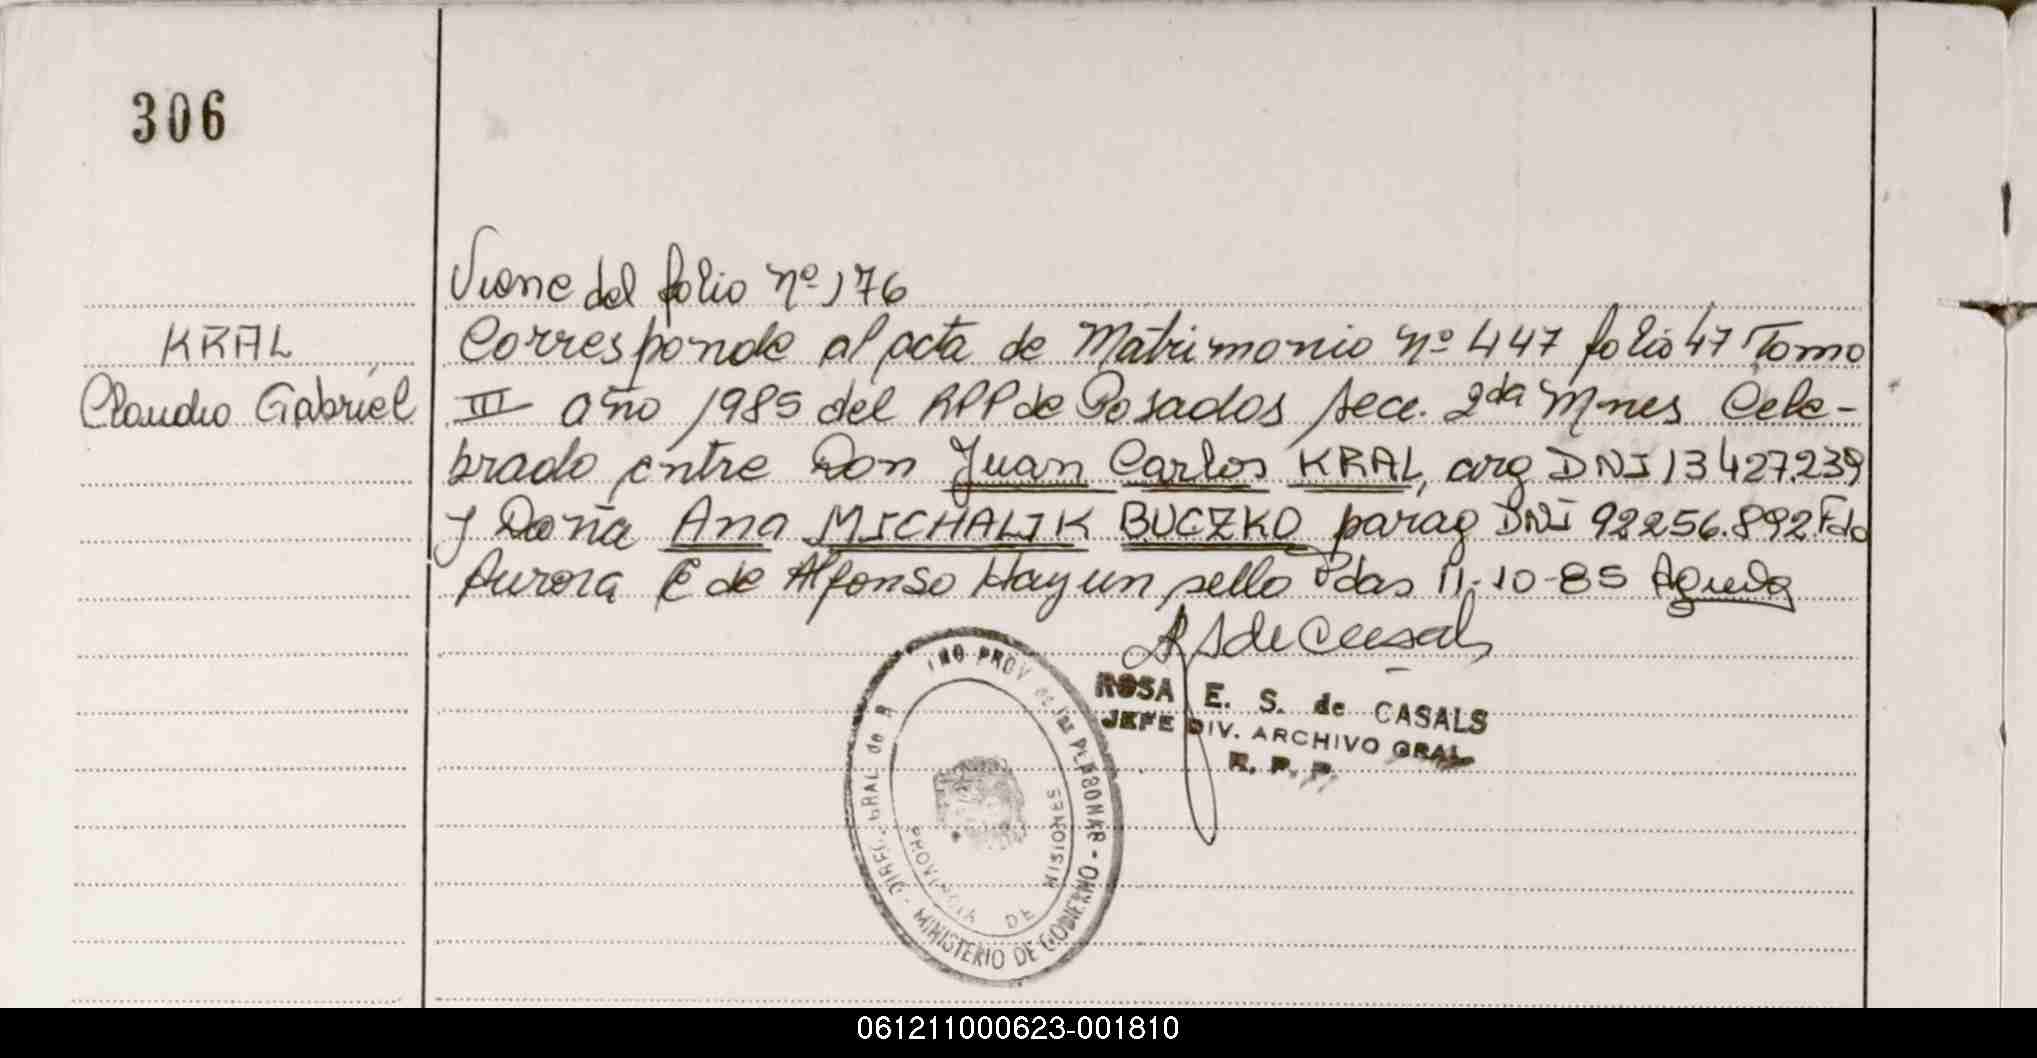 306
Viene del folio nº 176
KRAL
Claudio Gabriel
Corresponde al acta de Matrimonio nº 447 folio 47 Tomo
III año 1985 del RPP de Posadas secc. 2da Mnes Cele-
brado entre Don Juan Carlos KRAL, arg DNI 13427.239
y Doña Ana MICHALIK BUCZKO parag DNI 92256.892 Fdo
Aurora E de Alfonso Hay un sello Pdas 11-10-85 Agueda
ROSA E. S. de CASALS
JEFE DIV. ARCHIVO GRAL
R. P. P.
PROV de las PERSONAS - MINISTERIO DE GOBIERNO - GRAL de R
PROVINCIA DE MISIONES
061211000623-001810